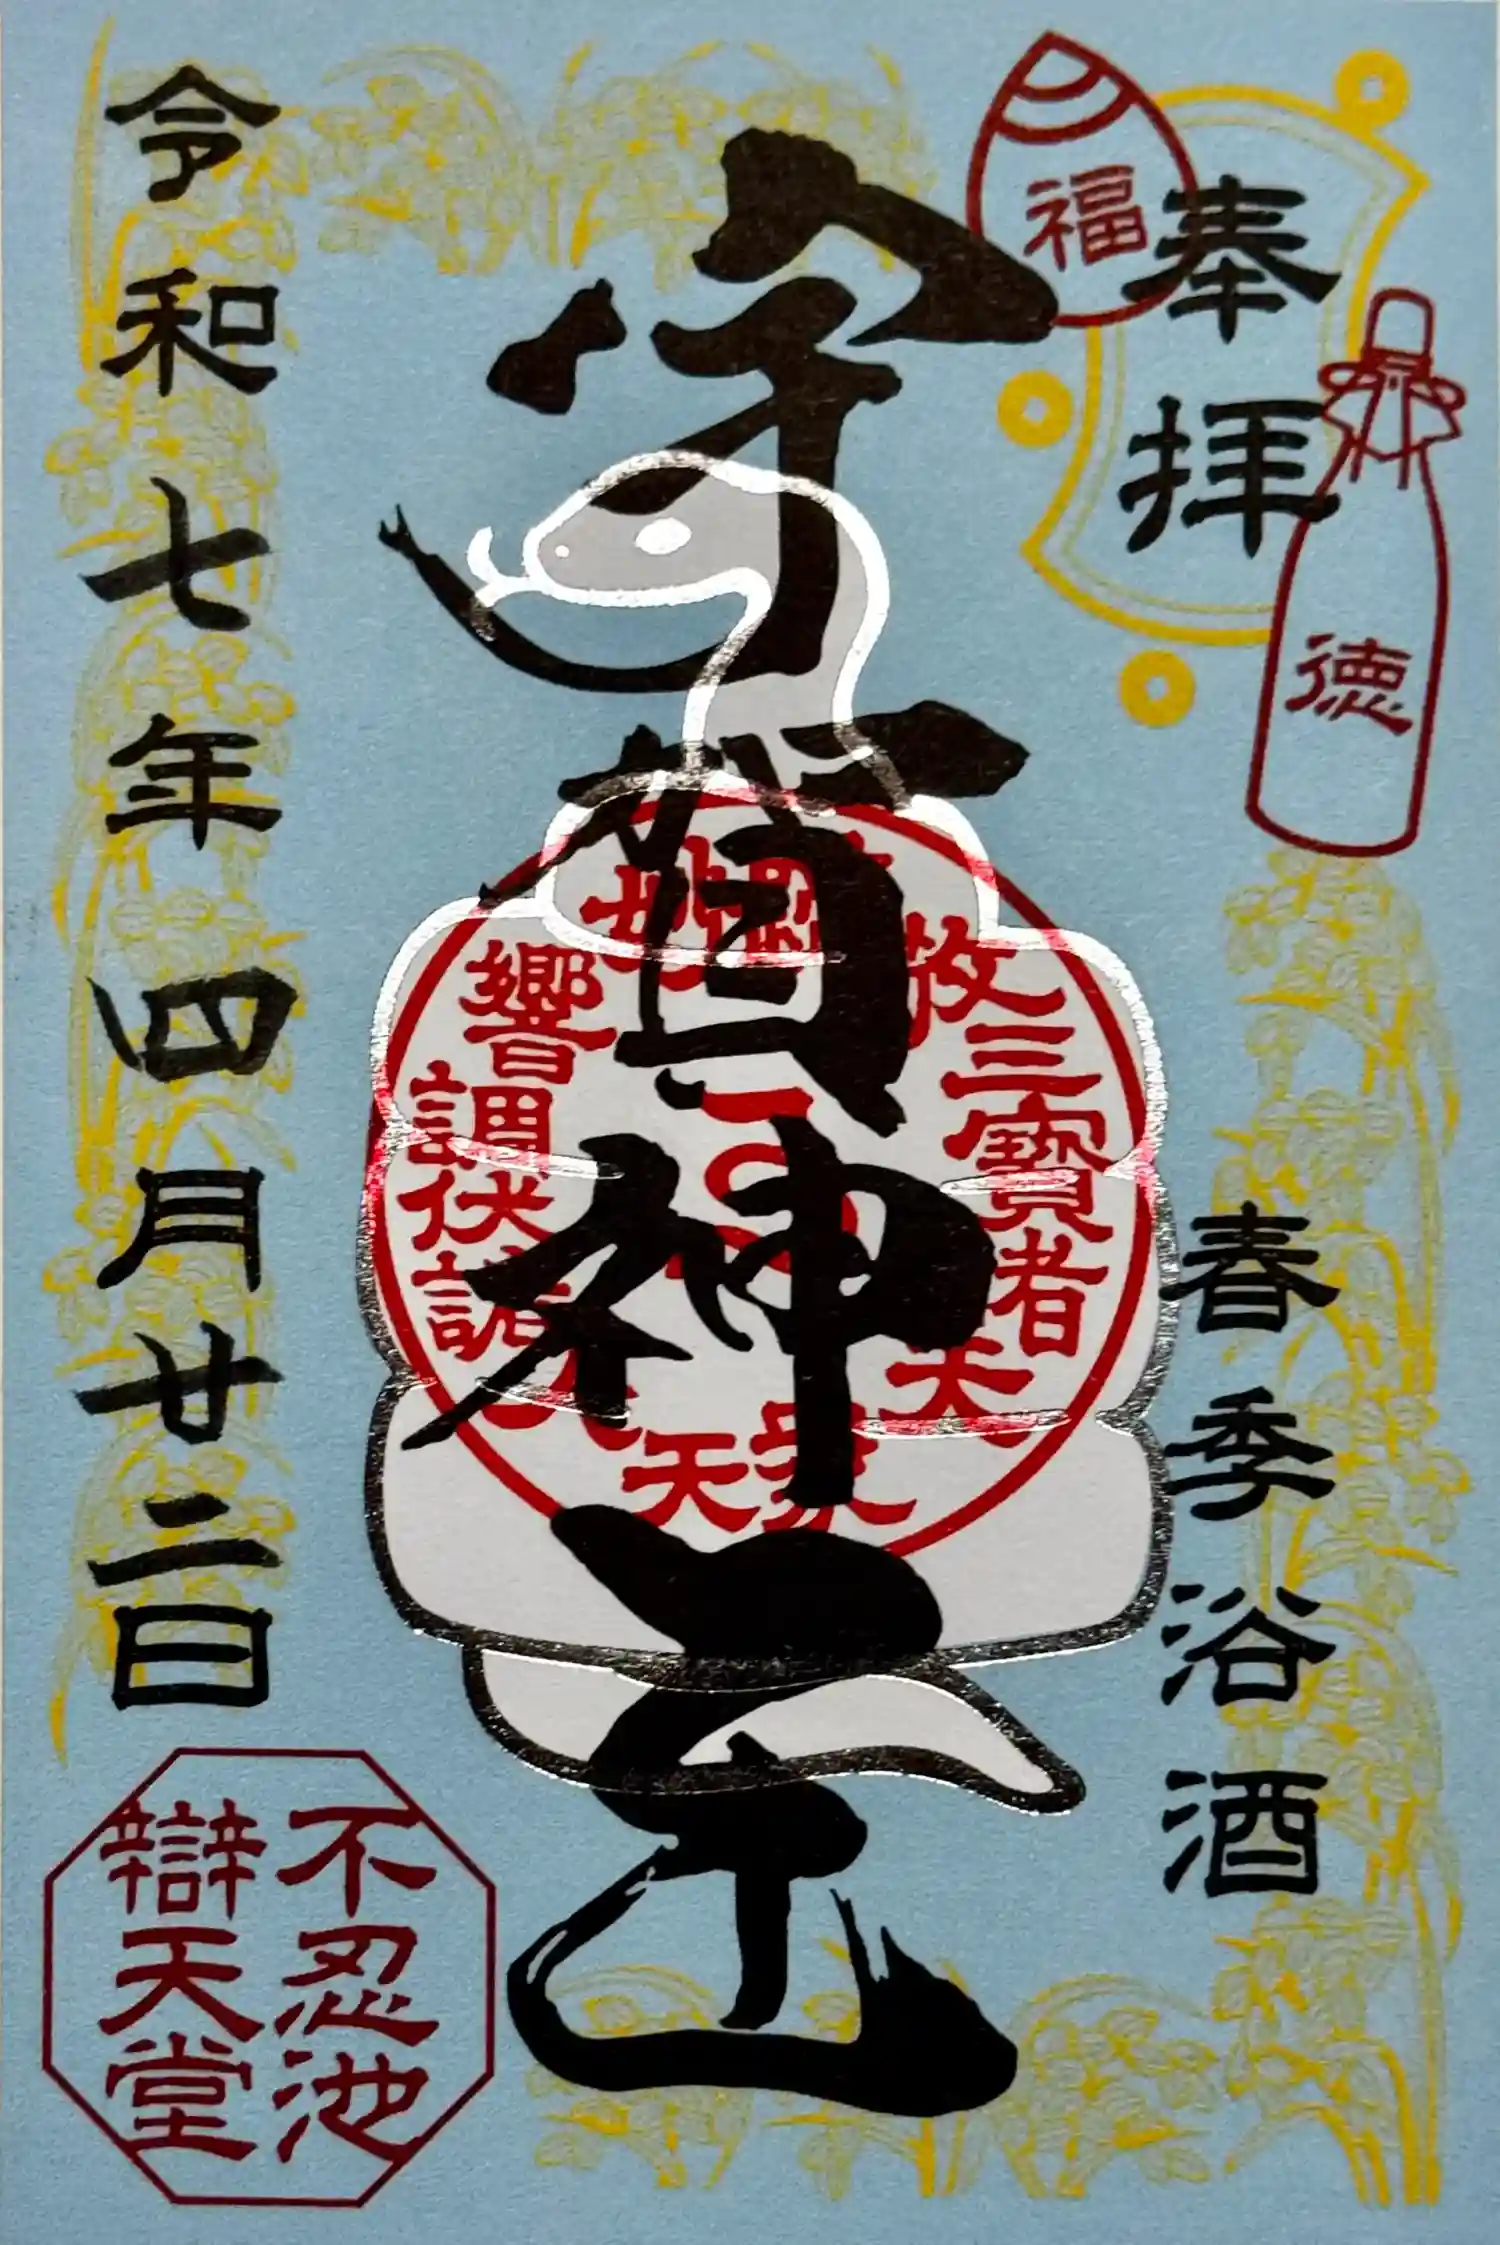 奉拝
春季浴酒
福
徳
宇賀神
三寶者
天
響
調伏
令和七年四月廿二日
不忍池
辯天堂